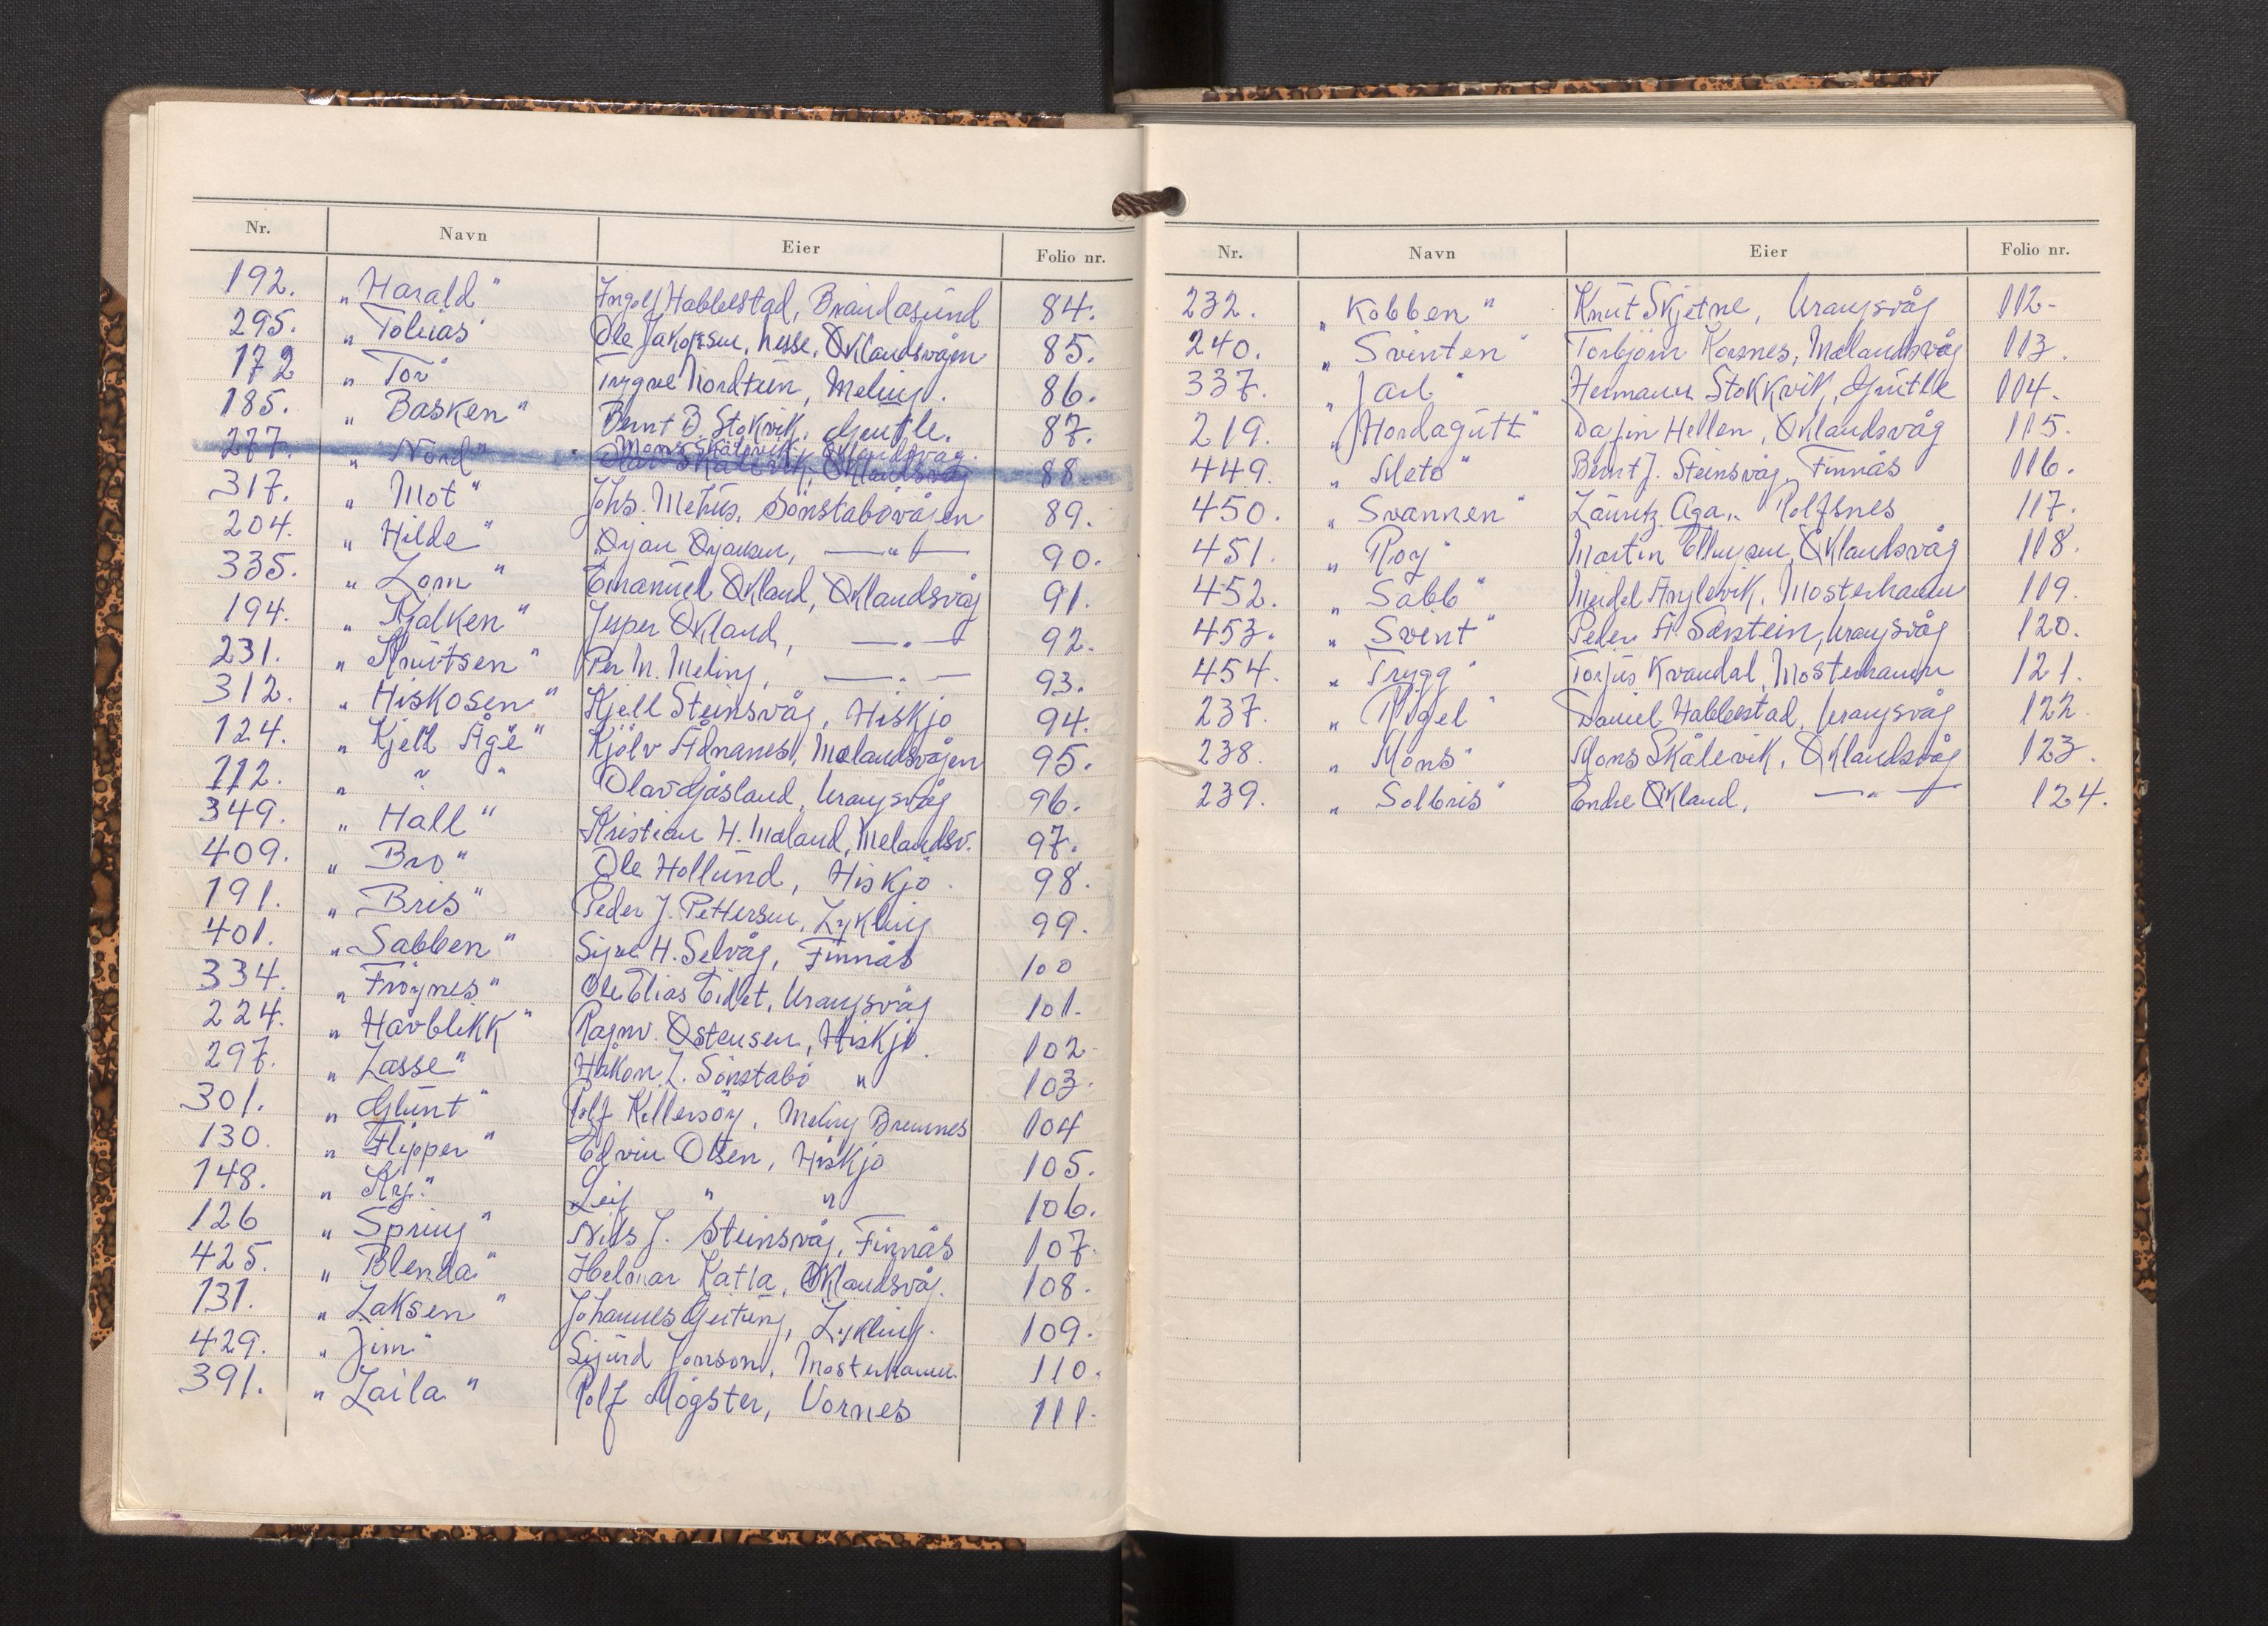 Nr. Navn Eier Folio nr.
192. „Harald" Ingolf Habbestad, Brandasund 84.
295. „Tobias" Ole Jakobsen, Nesse, Øklandsvågen 85.
172 „Tor" Trygve Nordtun, Meling. 86.
185. „Basken" Bernt B. Stokvik, 87.
Mons Skålevik, Øklandsvåg.
277. „Nord" Olav Skålevik, Øklandsvåg 88
317. „Mot" Johs. Mehus, Sönstabövågen 89.
204. „Hilde" Örjan Örjansen, —"— 90.
335. „Lom" Emanuel Økland, Øklandsvåg 91.
194. „Falken" Jesper Økland, —"— 92.
231. „Knutsen" Per M. Meling, —"— 93.
312. „Hiskosen" Kjell Steinsvåg, Hiskjo 94.
124. „Kjell Åge" Kjölv Ådnanes, Mælandsvågen 95.
112. „ " " Olav Gåsland, Urangsvåg 96.
349. „Hall" Kristian H. Mæland, Melandsv. 97.
409. „Bro" Ole Hollund, Hiskjö. 98.
191. „Bris" Peder J. Pettersen, Lykling 99.
401. „Sabben" Signe H. Selvåg, Finnås 100
334. „Fröynes" Ole Elias Eidet, Urangsvåg 101.
224. „Havblikk" Ragnv. Østensen, Hiskjo. 102-
297. „Lasse" Håkon L. Sönstabö " 103.
301. „Glunt" Rolf Kellersöy, Meling Bremnes 104
130. „Flipper" Edvin Olsen, Hiskjo 105.
148. „Ry." Leif " " 106.
126 „Spring" Nils J. Steinsvåg, Finnås 107.
425. „Blenda" Helmar Katla, Øklandsvåg. 108.
131. „Laksen" Johannes Geitung, Lykling. 109.
429. „Jim" Sigurd Jonson, Mosterhamn 110.
391. „Laila" Rolf Møgster, Vornes 111.
Nr. Navn Eier Folio nr.
232. „Kobben" Knut Skjetne, Urangsvåg 112-
240. „Svinten" Torbjörn Korsnes, Mælandsvåg 113.
337. „Jarl" Hermann Stokkvik, 114.
219. „Hordagutt" Dagfin Hellen, Øklandsvåg 115.
449. „Meto" Bernt J. Steinsvåg, Finnås 116.
450. „Svannen" Lauritz Aga, Rolfsnes 117.
451. „Roy" Martin Ellingsen, Øklandsvåg 118.
452. „Sabb" Meidel Anglevik, Mosterhamn 119.
453. „Svint" Peder A. Sørstein, Urangsvåg 120.
454. „Trygg" Torfus Kvandal, Mosterhamn 121.
237. „Rigel" Daniel Habbestad, Urangsvåg 122.
238. „Mons" Mons Skålevik, Øklandsvåg 123.
239. „Solbris" Endre Økland, —"— 124.